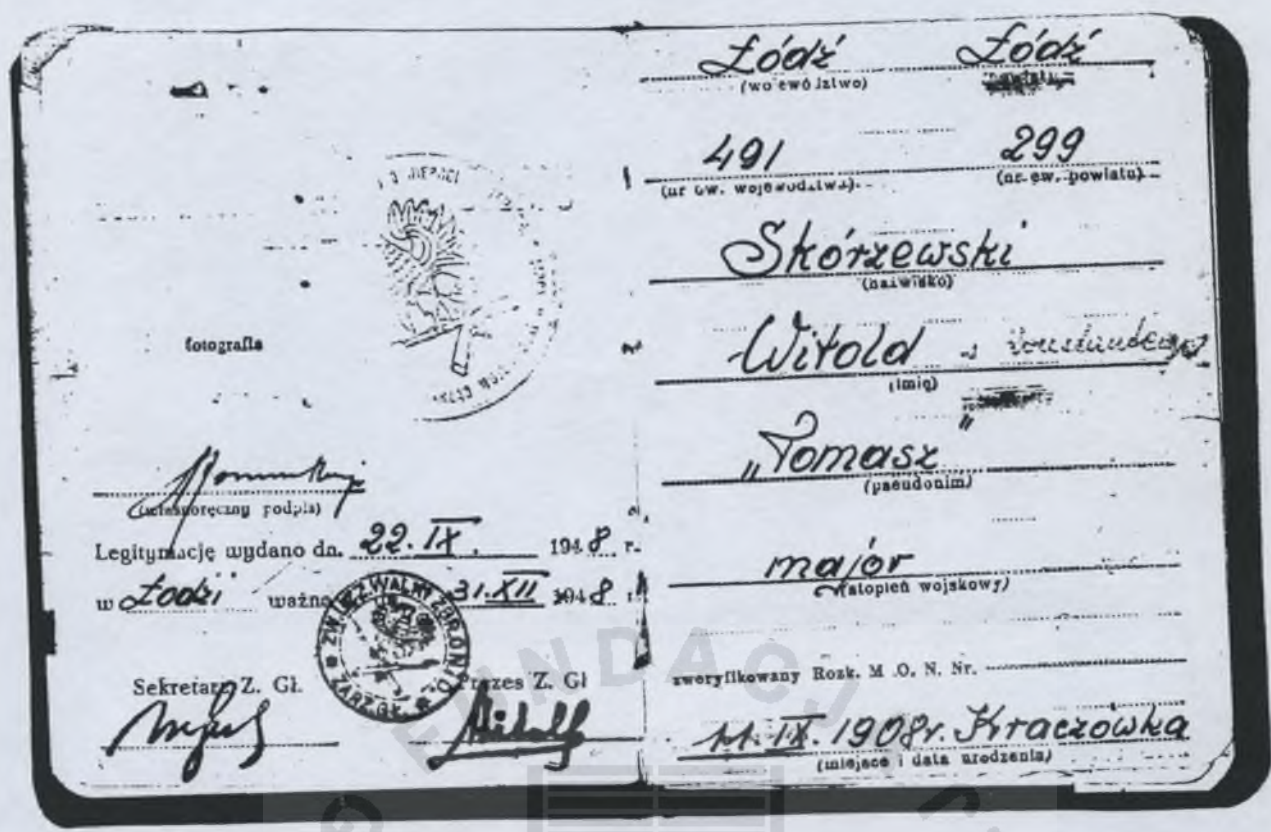 fotografia
(własnoręczny podpis)
Legitymację wydano dn. 22. IX. 1948 r.
w Łodzi ważna 31. XII 1948 r.
ZWIĄZ. WALKI ZBROJNEJ
ZARZ. GŁ.
Sekretarz Z. Gł. Prezes Z. Gł
Łódź Łódź
(województwo) powiatu
491 299
(nr ew. województwa) (nr ew. powiatu)
Skórzewski
(nazwisko)
Witold
(imię)
„Tomasz”
(pseudonim)
major
(stopień wojskowy)
zweryfikowany Rozk. M.O.N. Nr.
11. IX. 1908r. Kraczówka
(miejsce i data urodzenia)
FUNDACJ